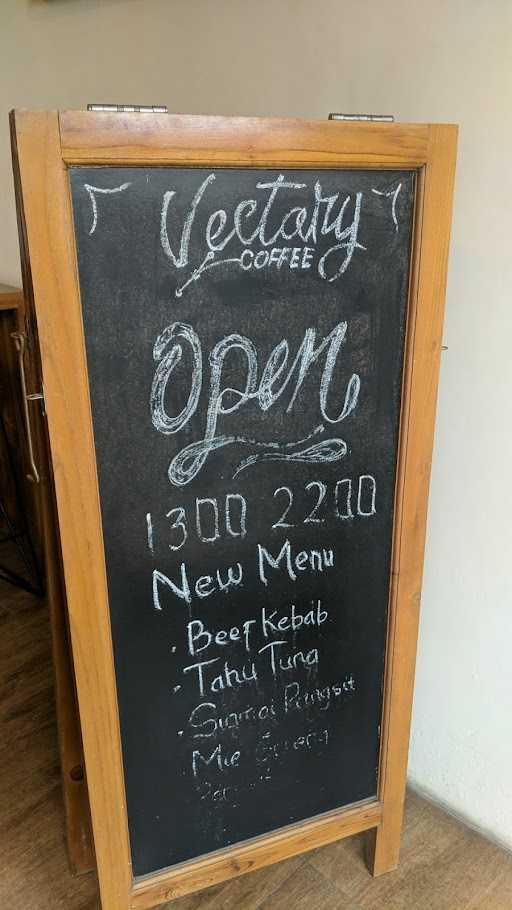 Vectary
COFFEE
Open
1300 2200
New Menu
. Beef Kebab
. Tahu Tuna
. Siomai Pangsit
Mie Goreng